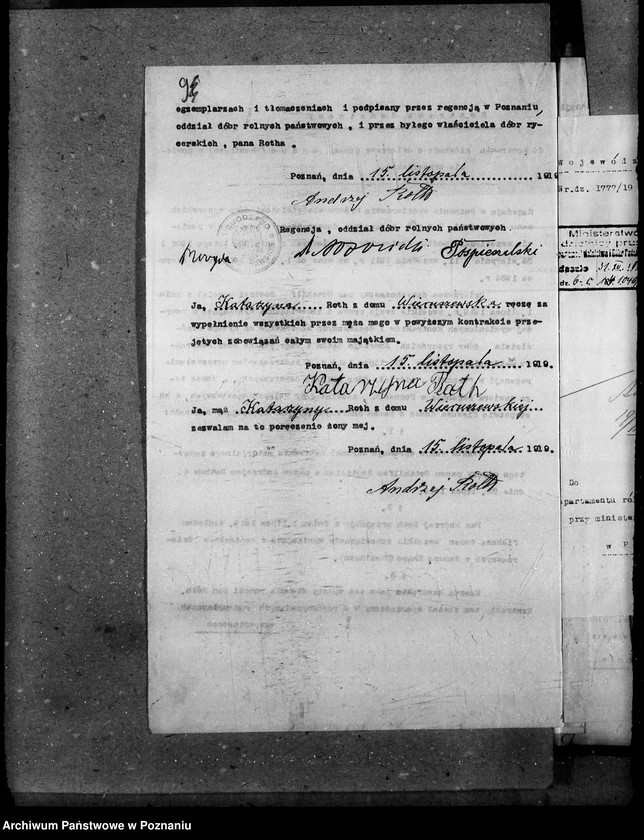 94
egzemplarzach i tłomaczeniach i podpisany przez regencją w Poznaniu,
oddział dóbr rolnych państwowych, i przez byłego właściciela dóbr ry-
cerskich, pana Rotha.
Poznań, dnia ..15. listopada............1919
Andrzej Roth
Regencja, oddział dóbr rolnych państwowych.
Pospieszalski
Ja, Katarzyna.....Roth z domu Wieruszowska ręczę za
wypełnienie wszystkich przez męża mego w powyższym kontrakcie prze-
jętych zobowiązań całym swoim majątkiem.
Poznań, dnia ...15 listopada......1919.
Katarzyna Roth
Ja, mąż Katarzyny...Roth z domu Wieruszowskiej...
zezwalam na to poręczenie żony mej.
Poznań, dnia .15. listopada.1919.
Andrzej Roth
Wojewódz
Nr.dz. 1777/19
Ministerstwo
Do
epartamentu ro
przy minist
w P
Archiwum Państwowe w Poznaniu